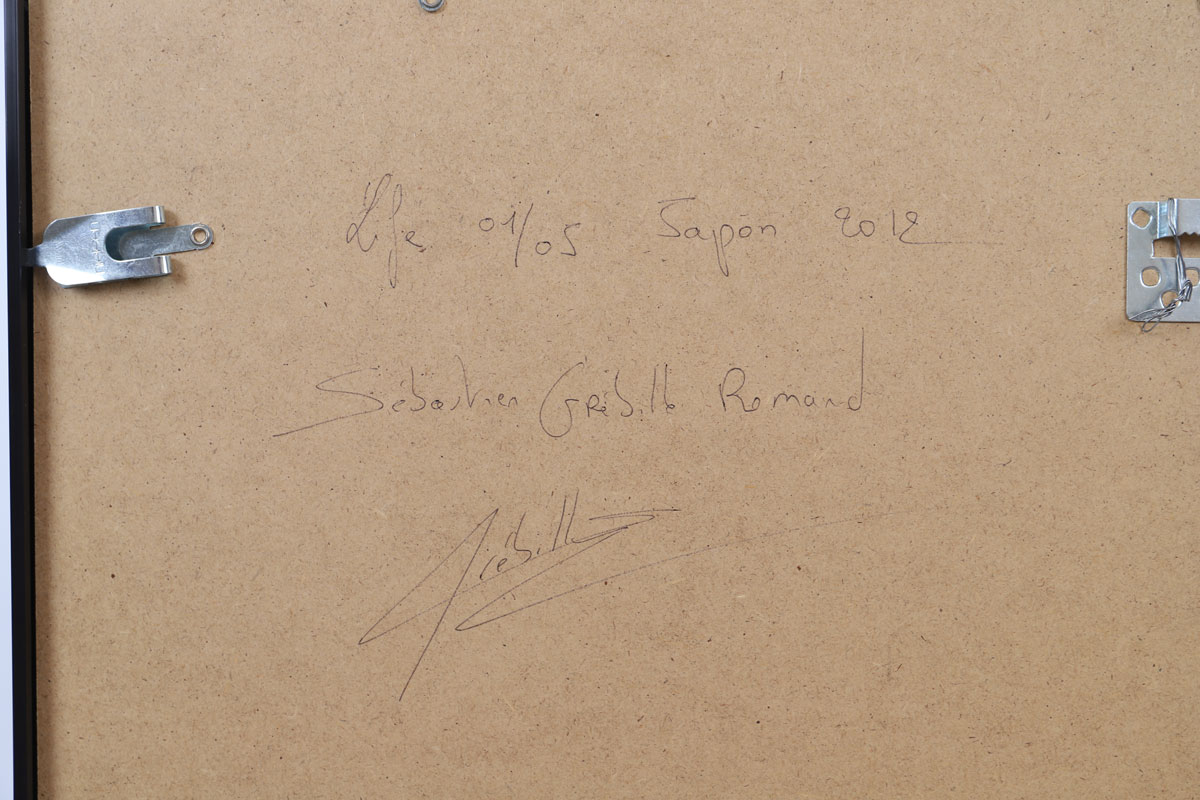 Life 01/05 Japon 2012
Sébastien Grébille Romand
Grébille